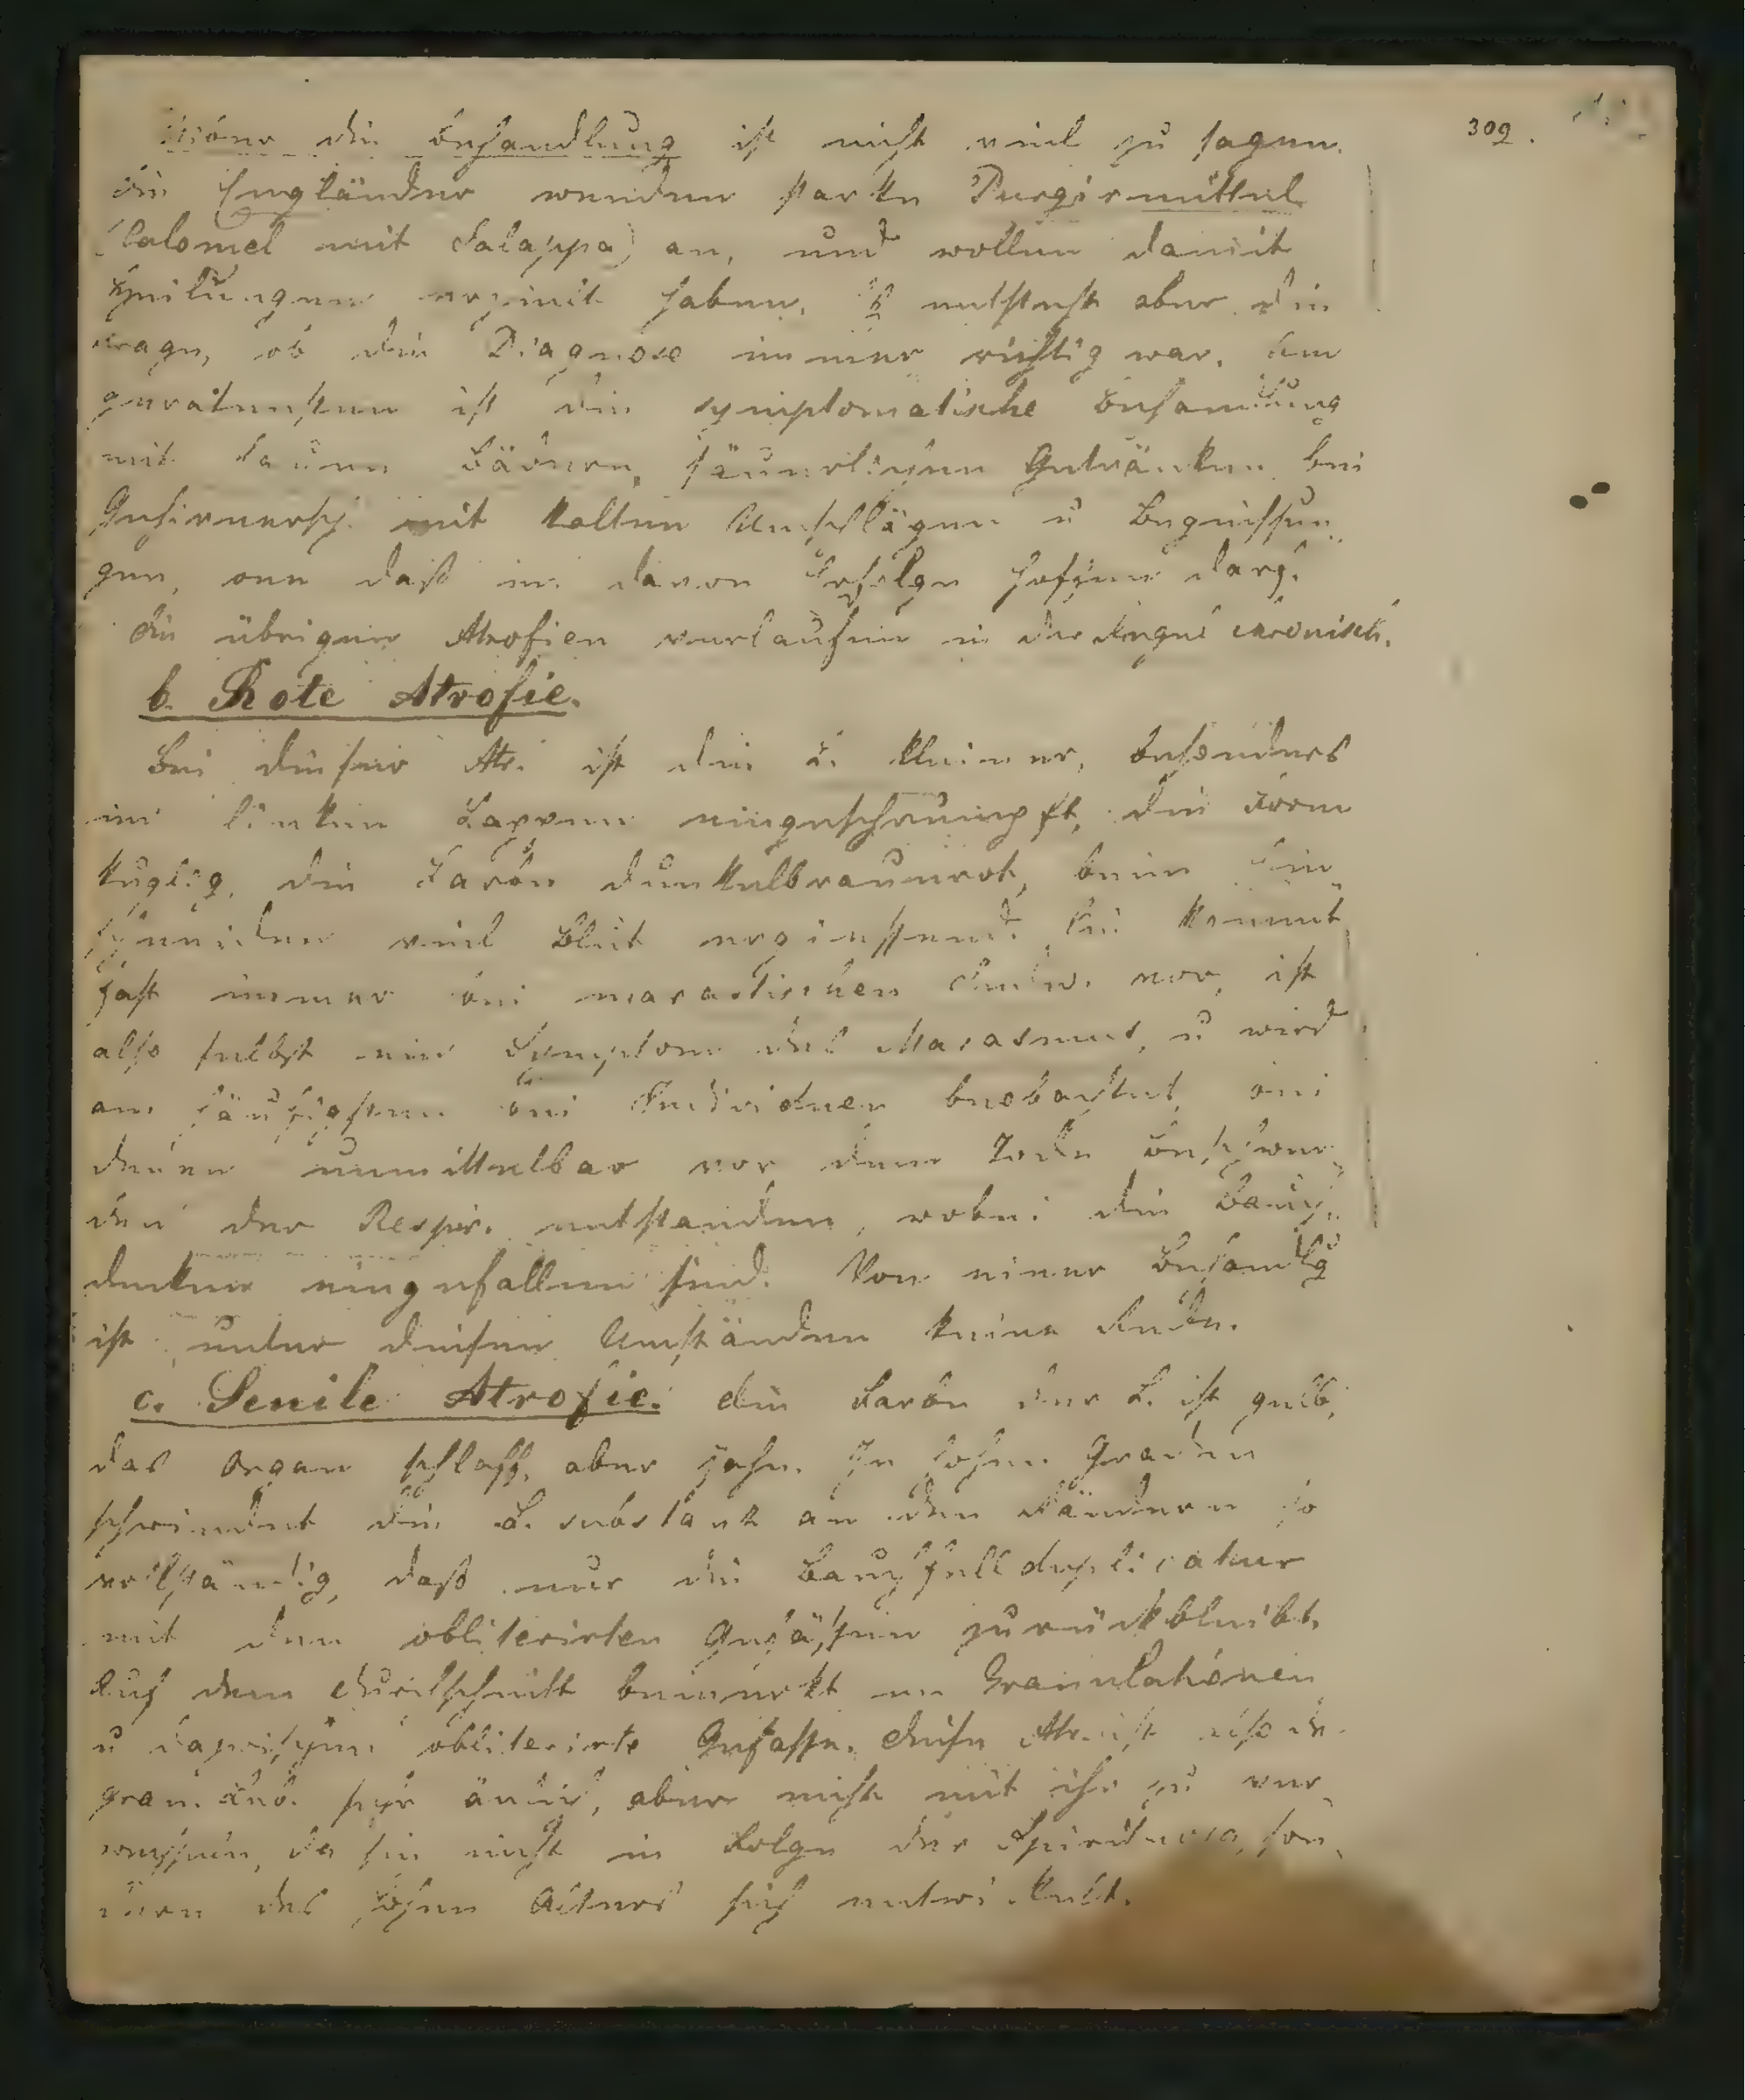 309.
Über die Behandlung ist nicht viel zu sagen.
Die Engländer wenden starke Purgirmittel
(Calomel mit Jalappa) an, und wollen damit
Heilungen erzielt haben. Es entsteht aber die
Frage, ob die Diagnose immer richtig war. Am
geratensten ist die symptomatische Behandlung
mit lauen Bädern, säuerlichen Getränken bei
Gehirnersch. mit kalten Umschlägen u Begiessun-
gen, one daß m. davon Erfolge hoffen darf.
Die übrigen Atrofien verlaufen in der Regel chronisch.
b. Rote Atrofie.
Bei dieser Atr. ist die L. kleiner, besonders
im linken Lappen eingeschrumpft, die Form
kuglig, die Farbe dunkelbraunrot, beim Ein-
schneiden viel Blut ergiessend. Sie kommt
fast immer bei marastischen Indiv. vor, ist
also selbst ein Symptom des Marasmus, u wird
am häufigsten bei Individuen beobachtet, bei
denen unmittelbar vor dem Tode Beschwer-
den der Respir. entstanden, wobei die Bauch-
decken eingefallen sind. Von einer Behandlg
ist unter diesen Umständen keine Rede.
c. Senile Atrofie. Die Farbe der L. ist gelb,
das Organ schlaff, aber zähe. In hohen Graden
schwindet die L. substanz an den Rändern so
vollständig, daß nur die Bauchfellduplicatur
mit den obliterirten Gefässen zurückbleibt.
Auf dem Durchschnitt bemerkt m Granulationen
u obliterirte Gefässe. Diese Atr. ist also der
gran. Leb. sehr änlich, aber nicht mit ihr zu ver-
wechseln, da sie nicht in Folge der Spirituosa, son-
dern des hohen Alters sich entwickelt.